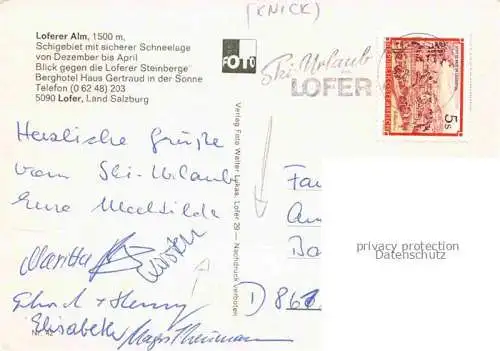 [KNICK]
Loferer Alm, 1500 m.
Schigebiet mit sicherer Schneelage
von Dezember bis April
Blick gegen die Loferer Steinberge
Berghotel Haus Gertraud in der Sonne
Telefon (0 62 48) 203
5090 Lofer, Land Salzburg
FOTO
Ski-Urlaub
LOFER
5 S
Verlag Foto Walter Lukas, Lofer 29 — Nachdruck verboten
Herzliche Grüße
vom Ski-Urlaub
Eure Mathilde
Maritta
Elisabeth
Nr. 42
Fa
Am
Ba
D) 867
privacy protection
Datenschutz